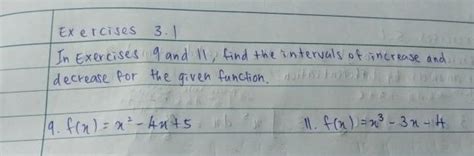 Exercises 3.1
In Exercises 9 and 11, find the intervals of increase and
decrease for the given function.
9. f(x) = x² - 4x + 5 11. f(x) = x³ - 3x - 4